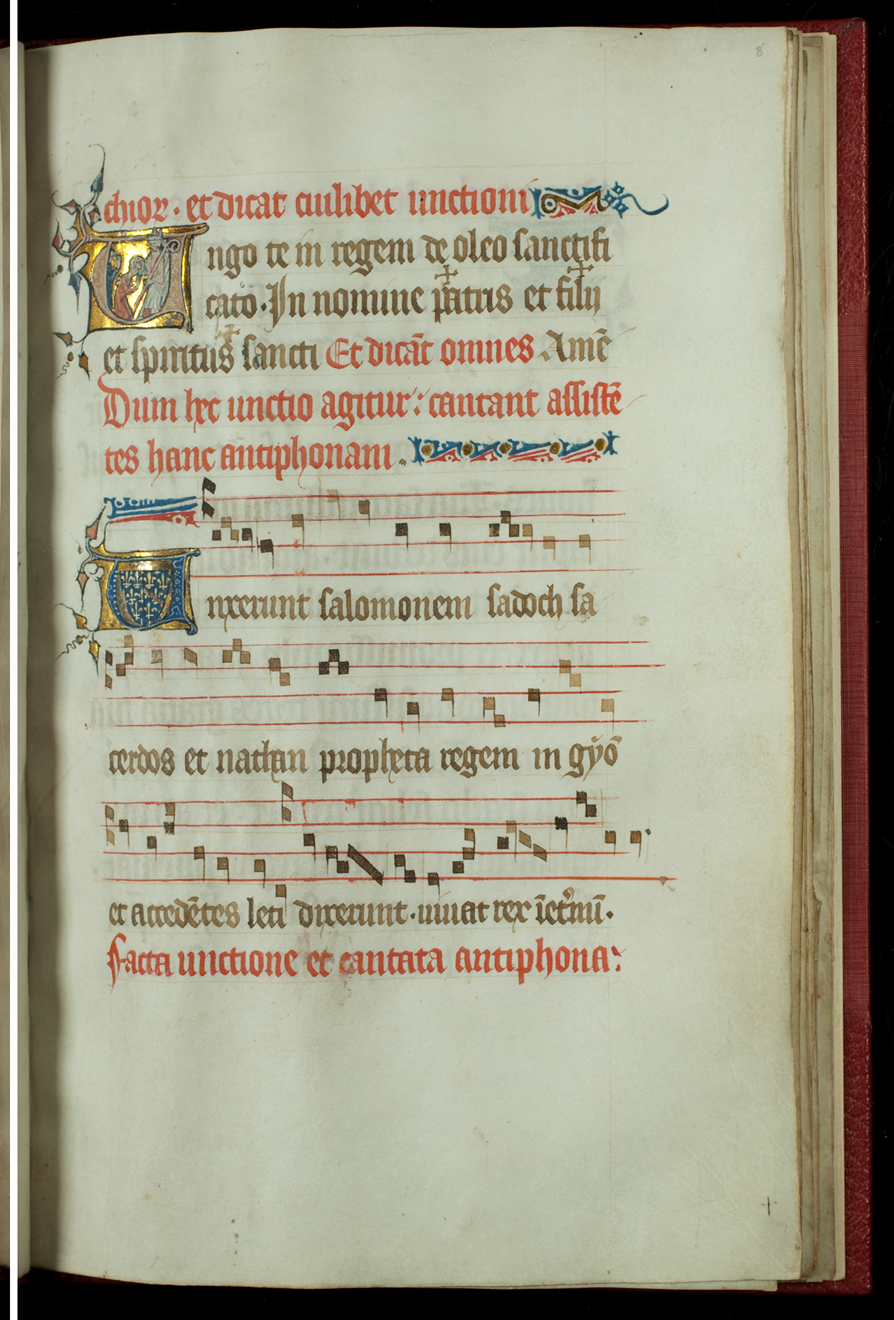 8
chior. et dicat cuilibet unctioni
Ungo te in regem de oleo sanctifi
cato. In nomine p✝atris et fi✝lij
et spiritus✝ sancti Et dicāt omnes Amē
Dum hec unctio agitur: cantant assistē
tes hanc antiphonam.
Unxerunt salomonem sadoch sa
cerdos et nathan propheta regem in gyō
et accedētes leti dixerunt. uiuat rex īet̓nū.
Facta unctione et cantata antiphona: